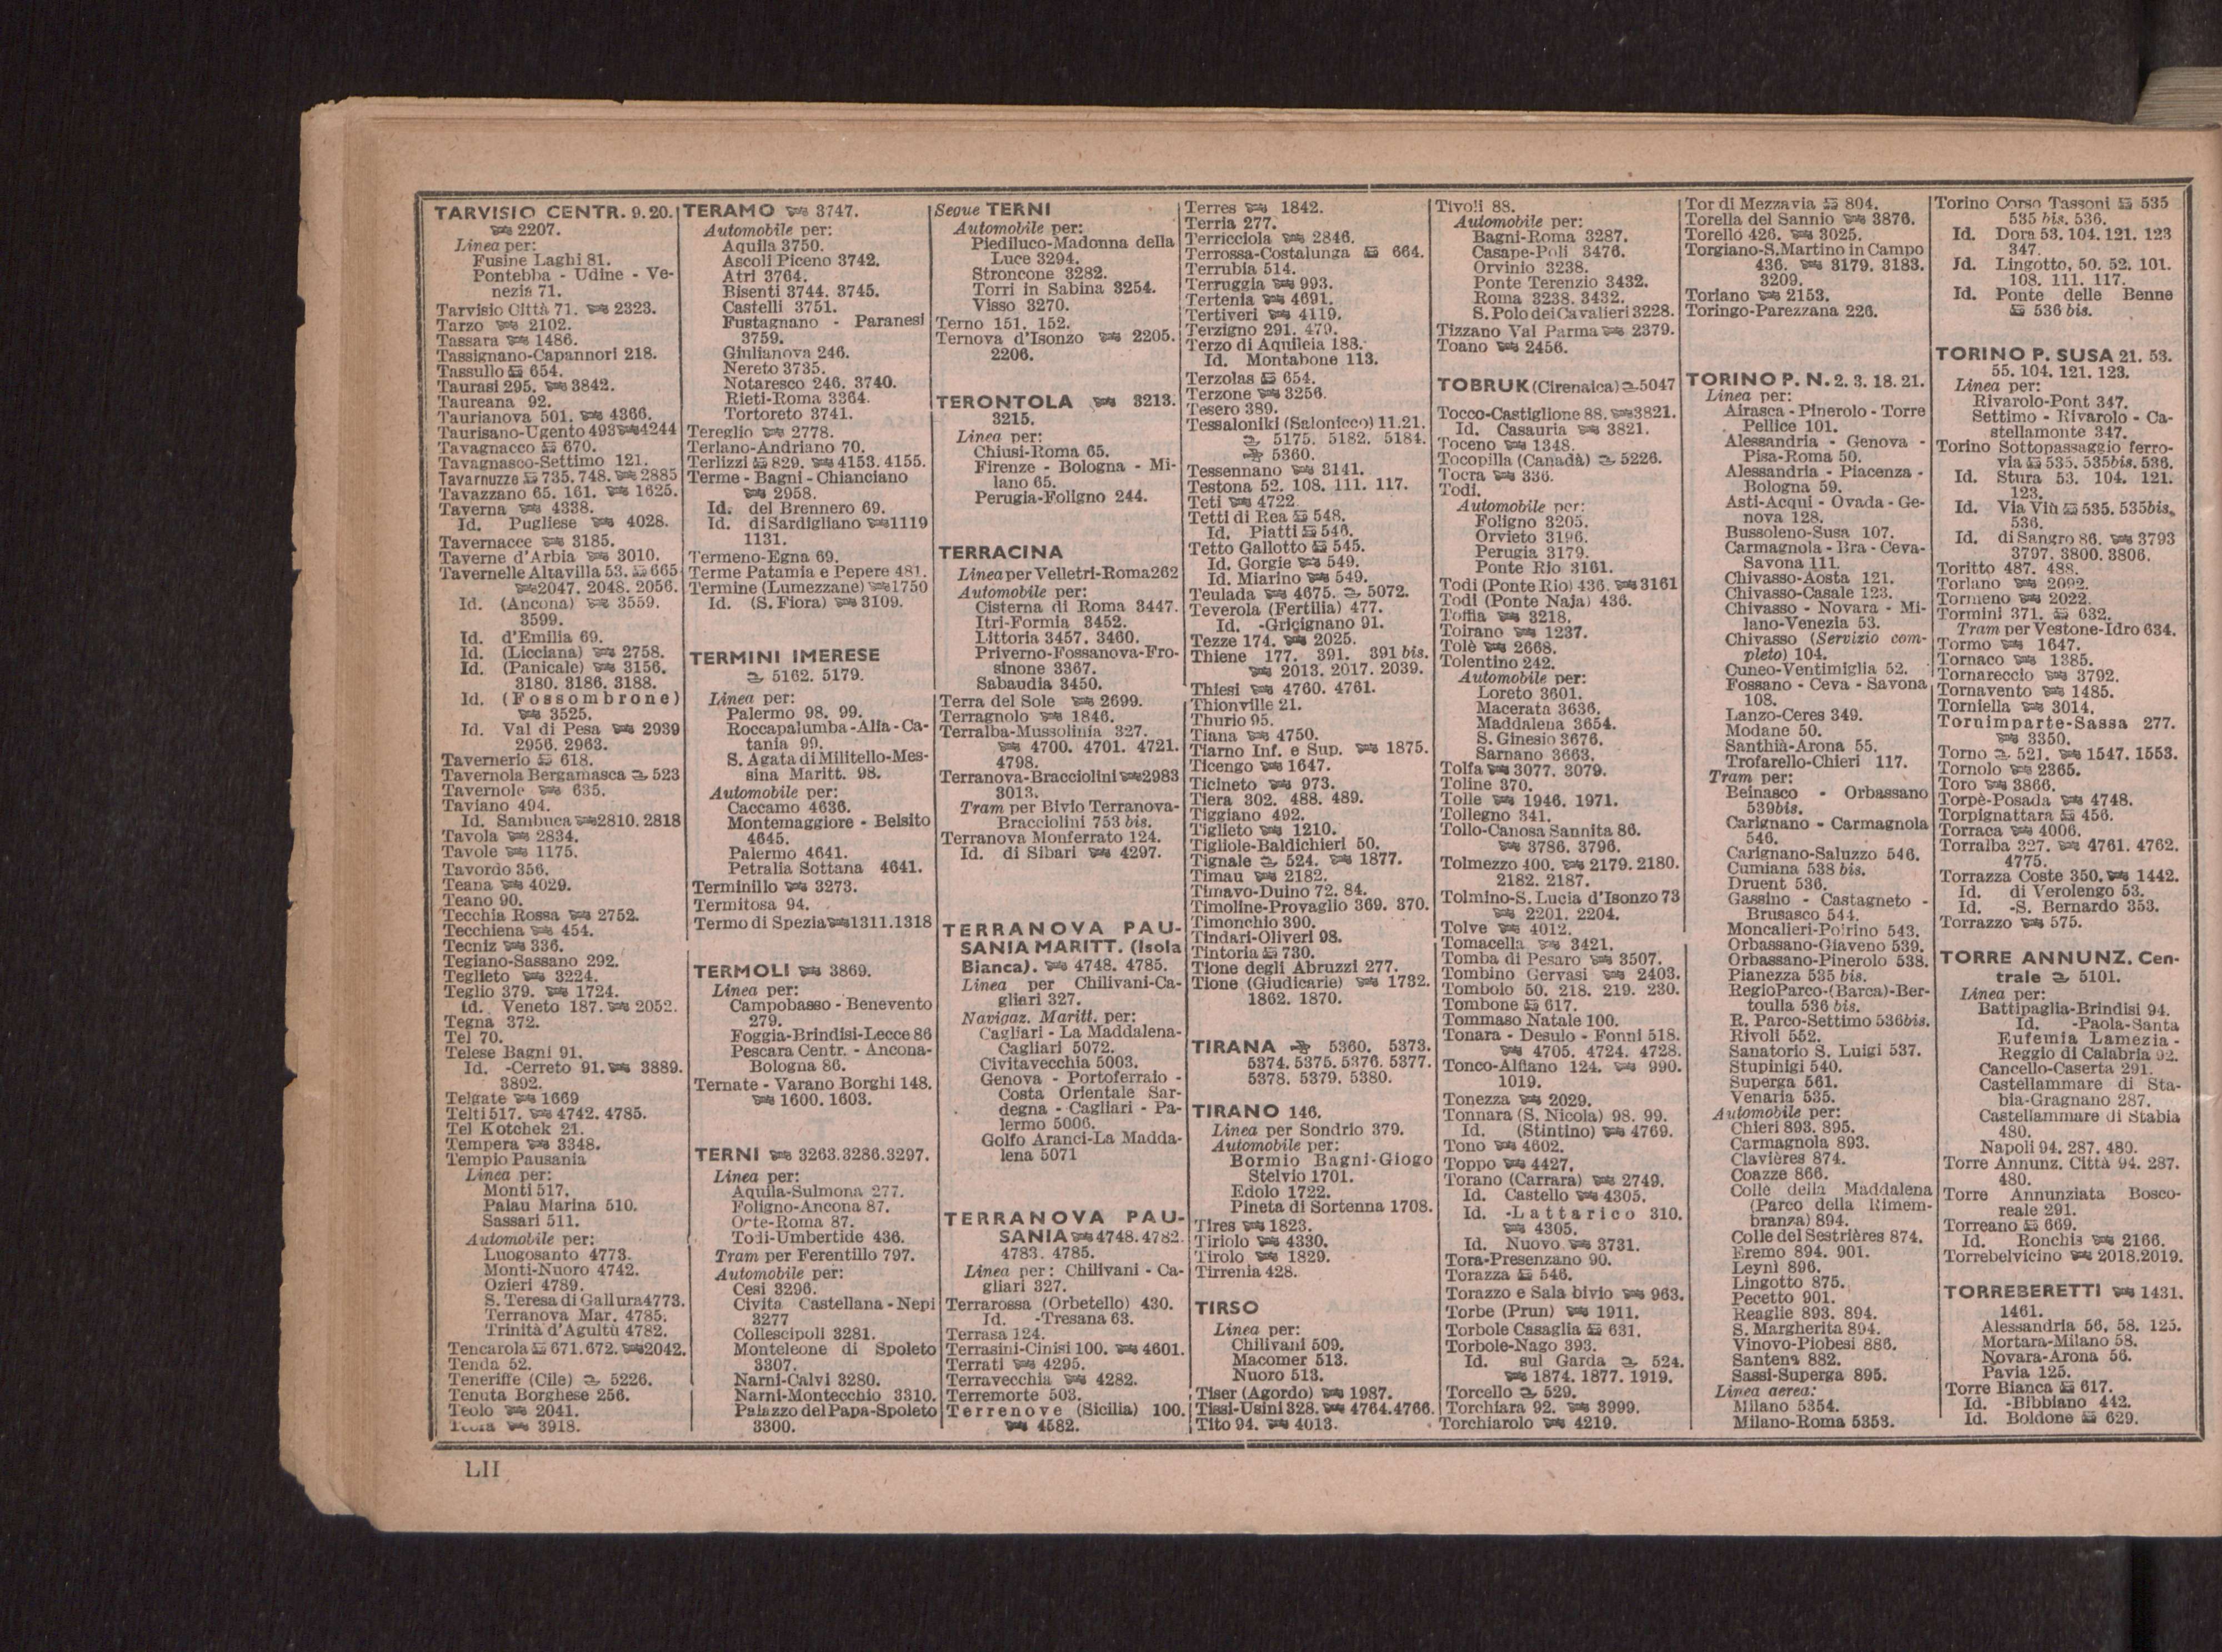 TARVISIO CENTR. 9. 20.
2207.
Linea per:
Fusine Laghi 81.
Pontebba - Udine - Ve-
nezia 71.
Tarvisio Città 71. 2323.
Tarzo 2102.
Tassara 1486.
Tassignano-Capannori 218.
Tassullo 654.
Taurasi 295. 3842.
Taureana 92.
Taurianova 501. 4366.
Taurisano-Ugento 493 4244
Tavagnacco 670.
Tavagnasco-Settimo 121.
Tavarnuzze 735. 748. 2885
Tavazzano 65. 161. 1625.
Taverna 4338.
Id. Pugliese 4028.
Tavernacce 3185.
Taverne d'Arbia 3010.
Tavernelle Altavilla 53. 665
2047. 2048. 2056.
Id. (Ancona) 3559.
3599.
Id. d'Emilia 69.
Id. (Licciana) 2758.
Id. (Panicale) 3156.
3180. 3186. 3188.
Id. (Fossombrone)
3525.
Id. Val di Pesa 2939
2956. 2963.
Tavernerio 618.
Tavernola Bergamasca 523
Tavernole 635.
Taviano 494.
Id. Sambuca 2810. 2818
Tavola 2834.
Tavole 1175.
Tavordo 356.
Teana 4029.
Teano 90.
Tecchia Rossa 2752.
Tecchiena 454.
Tecniz 336.
Tegiano-Sassano 292.
Teglieto 3224.
Teglio 379. 1724.
Id. Veneto 187. 2052.
Tegna 372.
Tel 70.
Telese Bagni 91.
Id. -Cerreto 91. 3889.
3892.
Telgate 1669
Telti 517. 4742. 4785.
Tel Kotchek 21.
Tempera 3348.
Tempio Pausania
Linea per:
Monti 517.
Palau Marina 510.
Sassari 511.
Automobile per:
Luogosanto 4773.
Monti-Nuoro 4742.
Ozieri 4789.
S. Teresa di Gallura 4773.
Terranova Mar. 4785.
Trinità d'Agultù 4782.
Tencarola 671. 672. 2042.
Tenda 52.
Teneriffe (Cile) 5226.
Tenuta Borghese 256.
Teolo 2041.
3918.
TERAMO 3747.
Automobile per:
Aquila 3750.
Ascoli Piceno 3742.
Atri 3764.
Bisenti 3744. 3745.
Castelli 3751.
Fustagnano - Paranesi
3759.
Giulianova 246.
Nereto 3735.
Notaresco 246. 3740.
Rieti-Roma 3364.
Tortoreto 3741.
Tereglio 2778.
Terlano-Andriano 70.
Terlizzi 829. 4153. 4155.
Terme - Bagni - Chianciano
2958.
Id. del Brennero 69.
Id. di Sardigliano 1119
1131.
Termeno-Egna 69.
Terme Patamia e Pepere 481.
Termine (Lumezzane) 1750
Id. (S. Fiora) 3109.
TERMINI IMERESE
5162. 5179.
Linea per:
Palermo 98. 99.
Roccapalumba-Alia-Ca-
tania 99.
S. Agata di Militello-Mes-
sina Maritt. 98.
Automobile per:
Caccamo 4636.
Montemaggiore - Belsito
4645.
Palermo 4641.
Petralia Sottana 4641.
Terminillo 3273.
Termitosa 94.
Termo di Spezia 1311. 1318
TERMOLI 3869.
Linea per:
Campobasso - Benevento
279.
Foggia-Brindisi-Lecce 86
Pescara Centr. - Ancona-
Bologna 86.
Ternate - Varano Borghi 148.
1600. 1603.
TERNI 3263. 3286. 3297.
Linea per:
Aquila-Sulmona 277.
Foligno-Ancona 87.
Orte-Roma 87.
Todi-Umbertide 436.
Tram per Ferentillo 797.
Automobile per:
Cesi 3296.
Civita Castellana - Nepi
3277
Collescipoli 3281.
Monteleone di Spoleto
3307.
Narni-Calvi 3280.
Narni-Montecchio 3310.
Palazzo del Papa-Spoleto
3300.
Segue TERNI
Automobile per:
Piediluco-Madonna della
Luce 3294.
Stroncone 3282.
Torri in Sabina 3254.
Visso 3270.
Terno 151. 152.
Ternova d'Isonzo 2205.
2206.
TERONTOLA 3213.
3215.
Linea per:
Chiusi-Roma 65.
Firenze - Bologna - Mi-
lano 65.
Perugia-Foligno 244.
TERRACINA
Linea per Velletri-Roma 262
Automobile per:
Cisterna di Roma 3447.
Itri-Formia 3452.
Littoria 3457. 3460.
Priverno-Fossanova-Fro-
sinone 3367.
Sabaudia 3450.
Terra del Sole 2699.
Terragnolo 1846.
Terralba-Mussolinia 327.
4700. 4701. 4721.
4798.
Terranova-Bracciolini 2983
3013.
Tram per Bivio Terranova-
Bracciolini 753 bis.
Terranova Monferrato 124.
Id. di Sibari 4297.
TERRANOVA PAU-
SANIA MARITT. (Isola
Bianca). 4748. 4785.
Linea per Chilivani-Ca-
gliari 327.
Navigaz. Maritt. per:
Cagliari - La Maddalena-
Cagliari 5072.
Civitavecchia 5003.
Genova - Portoferraio -
Costa Orientale Sar-
degna - Cagliari - Pa-
lermo 5006.
Golfo Aranci-La Madda-
lena 5071
TERRANOVA PAU-
SANIA 4748. 4782.
4783. 4785.
Linea per: Chilivani - Ca-
gliari 327.
Terrarossa (Orbetello) 430.
Id. -Tresana 63.
Terrasa 124.
Terrasini-Cinisi 100. 4601.
Terrati 4295.
Terravecchia 4282.
Terremorte 503.
Terrenove (Sicilia) 100.
4582.
Terres 1842.
Terria 277.
Terricciola 2846.
Terrossa-Costalunga 664.
Terrubia 514.
Terruggia 993.
Tertenia 4691.
Tertiveri 4119.
Terzigno 291. 479.
Terzo di Aquileia 183.
Id. Montabone 113.
Terzolas 654.
Terzone 3256.
Tesero 389.
Tessaloniki (Salonicco) 11. 21.
5175. 5182. 5184.
5360.
Tessennano 3141.
Testona 52. 108. 111. 117.
Teti 4722
Tetti di Rea 548.
Id. Piatti 546.
Tetto Gallotto 545.
Id. Gorgie 549.
Id. Miarino 549.
Teulada 4675. 5072.
Teverola (Fertilia) 477.
Id. -Gricignano 91.
Tezze 174. 2025.
Thiene 177. 391. 391 bis.
2013. 2017. 2039.
Thiesi 4760. 4761.
Thionville 21.
Thurio 95.
Tiana 4750.
Tiarno Inf. e Sup. 1875.
Ticengo 1647.
Ticineto 973.
Tiera 302. 488. 489.
Tiggiano 492.
Tiglieto 1210.
Tigliole-Baldichieri 50.
Tignale 524. 1877.
Timau 2182.
Timavo-Duino 72. 84.
Timoline-Provaglio 369. 370.
Timonchio 390.
Tindari-Oliveri 98.
Tintoria 730.
Tione degli Abruzzi 277.
Tione (Giudicarie) 1732.
1862. 1870.
TIRANA 5360. 5373.
5374. 5375. 5376. 5377.
5378. 5379. 5380.
TIRANO 146.
Linea per Sondrio 379.
Automobile per:
Bormio Bagni-Giogo
Stelvio 1701.
Edolo 1722.
Pineta di Sortenna 1708.
Tires 1823.
Tiriolo 4330.
Tirolo 1829.
Tirrenia 428.
TIRSO
Linea per:
Chilivani 509.
Macomer 513.
Nuoro 513.
Tiser (Agordo) 1987.
Tissi-Usini 328. 4764. 4766.
Tito 94. 4013.
Tivoli 88.
Automobile per:
Bagni-Roma 3287.
Casape-Poli 3476.
Orvinio 3238.
Ponte Terenzio 3432.
Roma 3238. 3432.
S. Polo dei Cavalieri 3228.
Tizzano Val Parma 2379.
Toano 2456.
TOBRUK (Cirenaica) 5047
Tocco-Castiglione 88. 3821.
Id. Casauria 3821.
Toceno 1348.
Tocopilla (Canadà) 5226.
Tocra 336.
Todi.
Automobile per:
Foligno 3205.
Orvieto 3196.
Perugia 3179.
Ponte Rio 3161.
Todi (Ponte Rio) 436. 3161
Todi (Ponte Naja) 436.
Toffia 3218.
Toirano 1237.
Tolè 2668.
Tolentino 242.
Automobile per:
Loreto 3601.
Macerata 3636.
Maddalena 3654.
S. Ginesio 3676.
Sarnano 3663.
Tolfa 3077. 3079.
Toline 370.
Tolle 1946. 1971.
Tollegno 341.
Tollo-Canosa Sannita 86.
3786. 3796.
Tolmezzo 400. 2179. 2180.
2182. 2187.
Tolmino-S. Lucia d'Isonzo 73
2201. 2204.
Tolve 4012.
Tomacella 3421.
Tomba di Pesaro 3507.
Tombino Gervasi 2403.
Tombolo 50. 218. 219. 230.
Tombone 617.
Tommaso Natale 100.
Tonara - Desulo - Fonni 518.
4705. 4724. 4728.
Tonco-Alfiano 124. 990.
1019.
Tonezza 2029.
Tonnara (S. Nicola) 98. 99.
Id. (Stintino) 4769.
Tono 4602.
Toppo 4427.
Torano (Carrara) 2749.
Id. Castello 4305.
Id. -Lattarico 310.
4305.
Id. Nuovo 3731.
Tora-Presenzano 90.
Torazza 546.
Torazzo e Sala bivio 963.
Torbe (Prun) 1911.
Torbole Casaglia 631.
Torbole-Nago 393.
Id. sul Garda 524.
1874. 1877. 1919.
Torcello 529.
Torchiara 92. 3999.
Torchiarolo 4219.
Tor di Mezzavia 804.
Torella del Sannio 3876.
Torello 426. 3025.
Torgiano-S. Martino in Campo
436. 3179. 3183.
3209.
Toriano 2153.
Toringo-Parezzana 226.
TORINO P. N. 2. 3. 18. 21.
Linea per:
Airasca - Pinerolo - Torre
Pellice 101.
Alessandria - Genova -
Pisa-Roma 50.
Alessandria - Piacenza -
Bologna 59.
Asti-Acqui - Ovada - Ge-
nova 128.
Bussoleno-Susa 107.
Carmagnola - Bra - Ceva-
Savona 111.
Chivasso-Aosta 121.
Chivasso-Casale 123.
Chivasso - Novara - Mi-
lano-Venezia 53.
Chivasso (Servizio com-
pleto) 104.
Cuneo-Ventimiglia 52.
Fossano - Ceva - Savona
108.
Lanzo-Ceres 349.
Modane 50.
Santhià-Arona 55.
Trofarello-Chieri 117.
Tram per:
Beinasco - Orbassano
539bis.
Carignano - Carmagnola
546.
Carignano-Saluzzo 546.
Cumiana 538 bis.
Druent 536.
Gassino - Castagneto -
Brusasco 544.
Moncalieri-Poirino 543.
Orbassano-Giaveno 539.
Orbassano-Pinerolo 538.
Pianezza 535 bis.
Regio Parco-(Barca)-Ber-
toulla 536 bis.
R. Parco-Settimo 536bis.
Rivoli 552.
Sanatorio S. Luigi 537.
Stupinigi 540.
Superga 561.
Venaria 535.
Automobile per:
Chieri 893. 895.
Carmagnola 893.
Clavières 874.
Coazze 866.
Colle della Maddalena
(Parco della Rimem-
branza) 894.
Colle del Sestrières 874.
Eremo 894. 901.
Leynì 896.
Lingotto 875.
Pecetto 901.
Reaglie 893. 894.
S. Margherita 894.
Vinovo-Piobesi 886.
Santena 882.
Sassi-Superga 895.
Linea aerea:
Milano 5354.
Milano-Roma 5353.
Torino Corso Tassoni 535
535 bis. 536.
Id. Dora 53. 104. 121. 123
347.
Id. Lingotto, 50. 52. 101.
108. 111. 117.
Id. Ponte delle Benne
536 bis.
TORINO P. SUSA 21. 53.
55. 104. 121. 123.
Linea per:
Rivarolo-Pont 347.
Settimo - Rivarolo - Ca-
stellamonte 347.
Torino Sottopassaggio ferro-
via 535. 535bis. 536.
Id. Stura 53. 104. 121.
123.
Id. Via Viù 535. 535bis.
536.
Id. di Sangro 86. 3793
3797. 3800. 3806.
Toritto 487. 488.
Torlano 2092.
Tormeno 2022.
Tormini 371. 632.
Tram per Vestone-Idro 634.
Tormo 1647.
Tornaco 1385.
Tornareccio 3792.
Tornavento 1485.
Torniella 3014.
Tornimparte-Sassa 277.
3350.
Torno 521. 1547. 1553.
Tornolo 2365.
Toro 3866.
Torpè-Posada 4748.
Torpignattara 456.
Torraca 4006.
Torralba 327. 4761. 4762.
4775.
Torrazza Coste 350. 1442.
Id. di Verolengo 53.
Id. -S. Bernardo 353.
Torrazzo 575.
TORRE ANNUNZ. Cen-
trale 5101.
Linea per:
Battipaglia-Brindisi 94.
Id. -Paola-Santa
Eufemia Lamezia -
Reggio di Calabria 92.
Cancello-Caserta 291.
Castellammare di Sta-
bia-Gragnano 287.
Castellammare di Stabia
480.
Napoli 94. 287. 480.
Torre Annunz. Città 94. 287.
480.
Torre Annunziata Bosco-
reale 291.
Torreano 669.
Id. Ronchis 2166.
Torrebelvicino 2018. 2019.
TORREBERETTI 1431.
1461.
Alessandria 56, 58. 125.
Mortara-Milano 58.
Novara-Arona 56.
Pavia 125.
Torre Bianca 617.
Id. -Bibbiano 442.
Id. Boldone 629.
LII